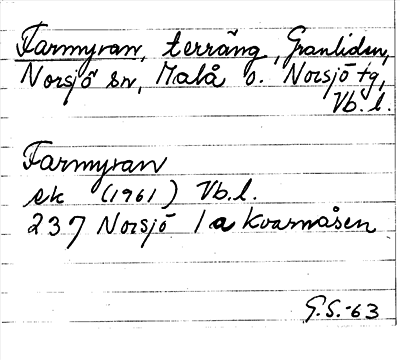 Farmyran, terräng, Granliden,
Norsjö sn, Malå o. Norsjö tg,
Vb. l.
Farmyran
ek (1961) Vb. l.
237 Norsjö 1a Kvarnåsen
G.S.-63